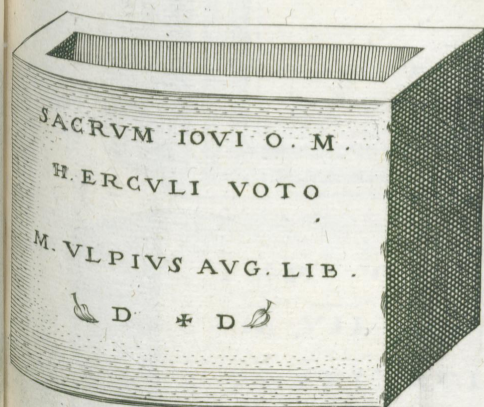 SACRVM IOVI O. M.
H. ERCVLI VOTO
M. VLPIVS AVG. LIB.
D ✠ D